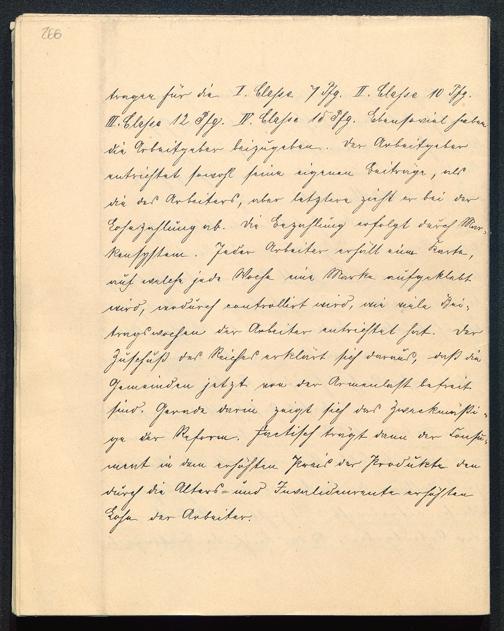 266
tragen für die I. Classe 7 Pfg. II. Classe 10 Pfg.
III. Classe 12 Pfg. IV. Classe 15 Pfg. Ebensoviel haben
die Arbeitgeber beizugeben. Der Arbeitgeber
entrichtet sowohl seine eigenen Beiträge, als
die des Arbeiters, aber letztere zieht er bei der
Lohnzahlung ab. Die Bezahlung erfolgt durch Mar-
kensystem. Jeder Arbeiter erhält eine Karte,
auf welche jede Woche eine Marke aufgeklebt
wird, wodurch controlliert wird, wie viele Bei-
tragswochen der Arbeiter entrichtet hat. Der
Zuschuß des Reiches erklärt sich daraus, daß die
Gemeinden jetzt von der Armenlast befreit
sind. Gerade darin zeigt sich das Zweckmäßi-
ge der Reform. Factisch trägt dann der Consu-
ment in dem erhöhten Preis der Produkte den
durch die Alters- und Invalidenrente erhöhten
Lohn der Arbeiter.